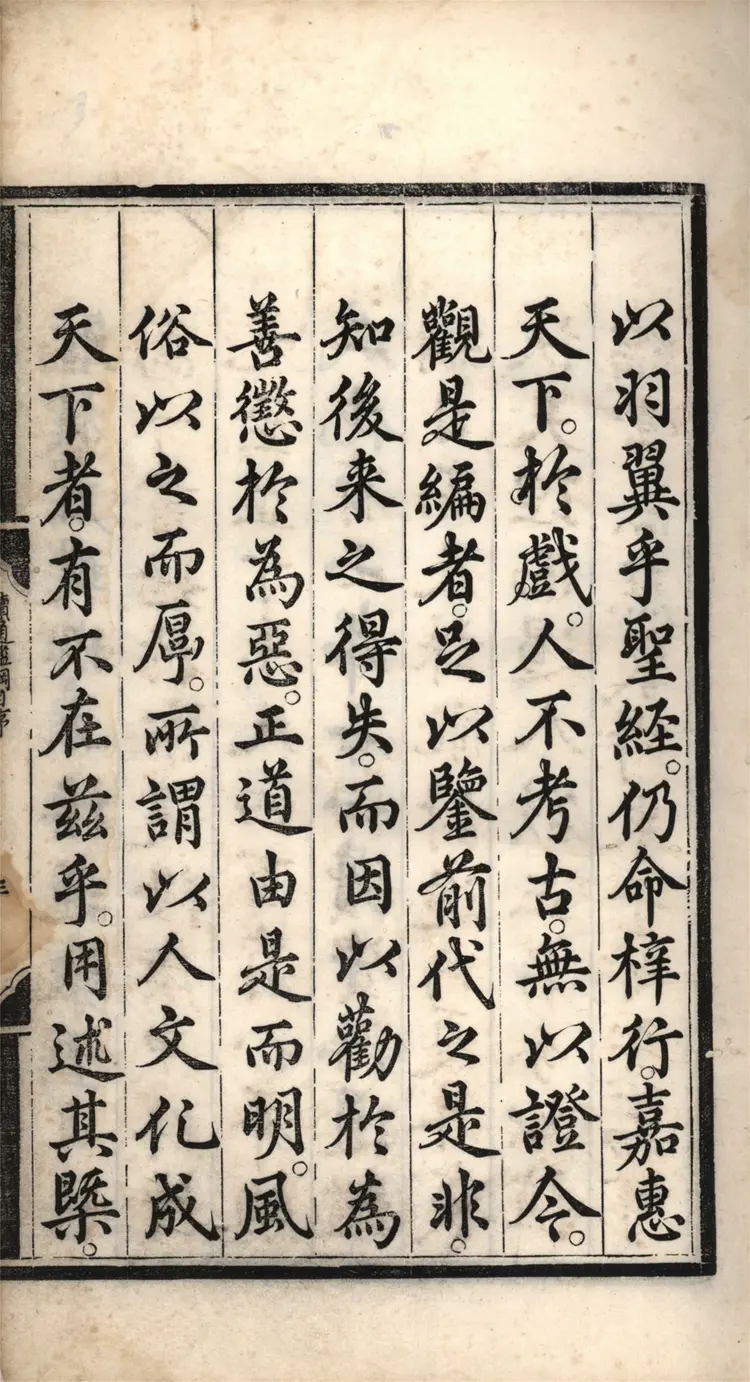 以羽翼乎聖經。仍命梓行。嘉惠
天下。於戲。人不考古。無以證今。
觀是編者。足以鑒前代之是非。
知後来之得失。而因以勸於為
善懲於為惡。正道由是而明。風
俗以之而厚。所謂以人文化成
天下者。有不在兹乎。用述其槩。
續通鑑綱目序
三